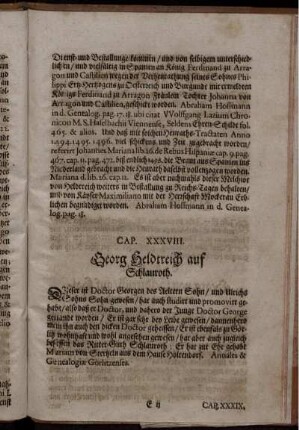 Dienst- und Bestallunge kommen / und von selbigem unterschied-
lich / en / und vielfältig in Spanien an König Ferdinand zu Arra-
gon und Castilien wegen der Verheyrathung seines Sohnes Philip-
pi Ertz-Hertzogen zu Oesterreich und Burgundie mit ermeldten
Königs Ferdinand zu Arragon Fräulein Tochter Johanna von
Arragon und Castilien, geschickt worden. Abraham Hoffmann
in d. Genealog. pag. 17. 18. ubi citat VVolffgang Lazium Chro-
nicon M.S. Haselbachii Viennensis, Seldens Ehren-Schilde fol.
465. & alios. Und daß mit solchen Heyraths-Tractaten Anno
1494. 1495. 1496.
referret Johannes Mariana lib. 26. de Rebus Hispanic. cap. 9. pag.
467. cap. 11. pag. 471. biß endlich die Braut aus Spanien zur
Niederland gebracht und die Heurath daselbst vollenzogen worden.
Mariana d. lib. 26. cap. 12. Es ist aber nochmahls dieser Melchior
von Heldreich weiters in Bestallung zu Reichs-Tagen behalten /
und von Kayser Maximiliano mit der Herrschafft
begnadiget worden. Abraham Hoffmann in d. Genea-
log. pag. 18.
CAP. XXXVIII.
Georg Heldreich auf
Schlauroth.
Dieser ist Doctor Georgen des Aeltern Sohn / und Ulrichs
Sohns Sohn gewesen / hat auch studiert und promovirt ge-
habt / also daß er Doctor, und dahero der Junge Doctor George
genandt worden / Er ist gar sehr dick Leibe gewesen / dannenhero
man ihn auch den dicken Doctor geheissen / Er ist ebenfals zu Gör-
litz wohnhafft und wohl angesehen gewesen / hat aber auch zugleich
besessen das Ritter-Guth Schlauroth / Er hat zur Ehe gehabt
Mariam von aus dem Hause Holtendorf. Annales &
Genealogiæ Gorlicenses.
E ij
CAP. XXXIX.